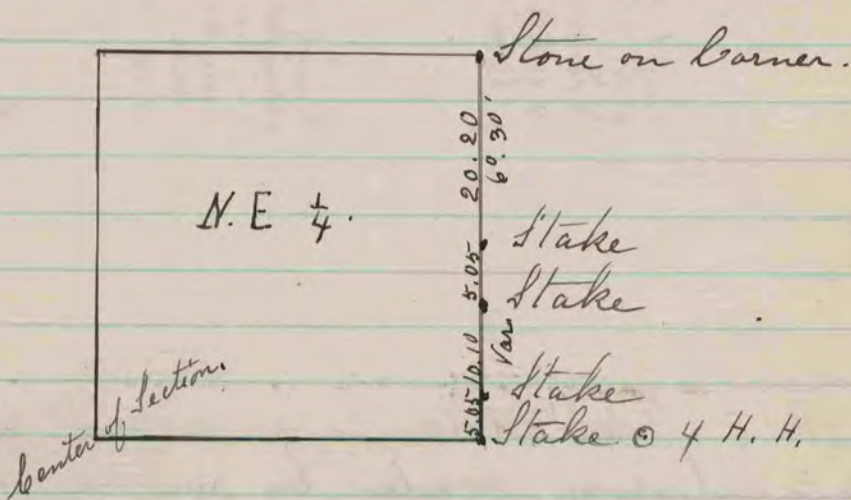 Stone on Corner.
20.20
6°.30'
N.E 1/4.
Stake
5.05
Stake
Var.
10.10
Stake
5.05
Stake ⊙ 4 H. H.
Center of Section.